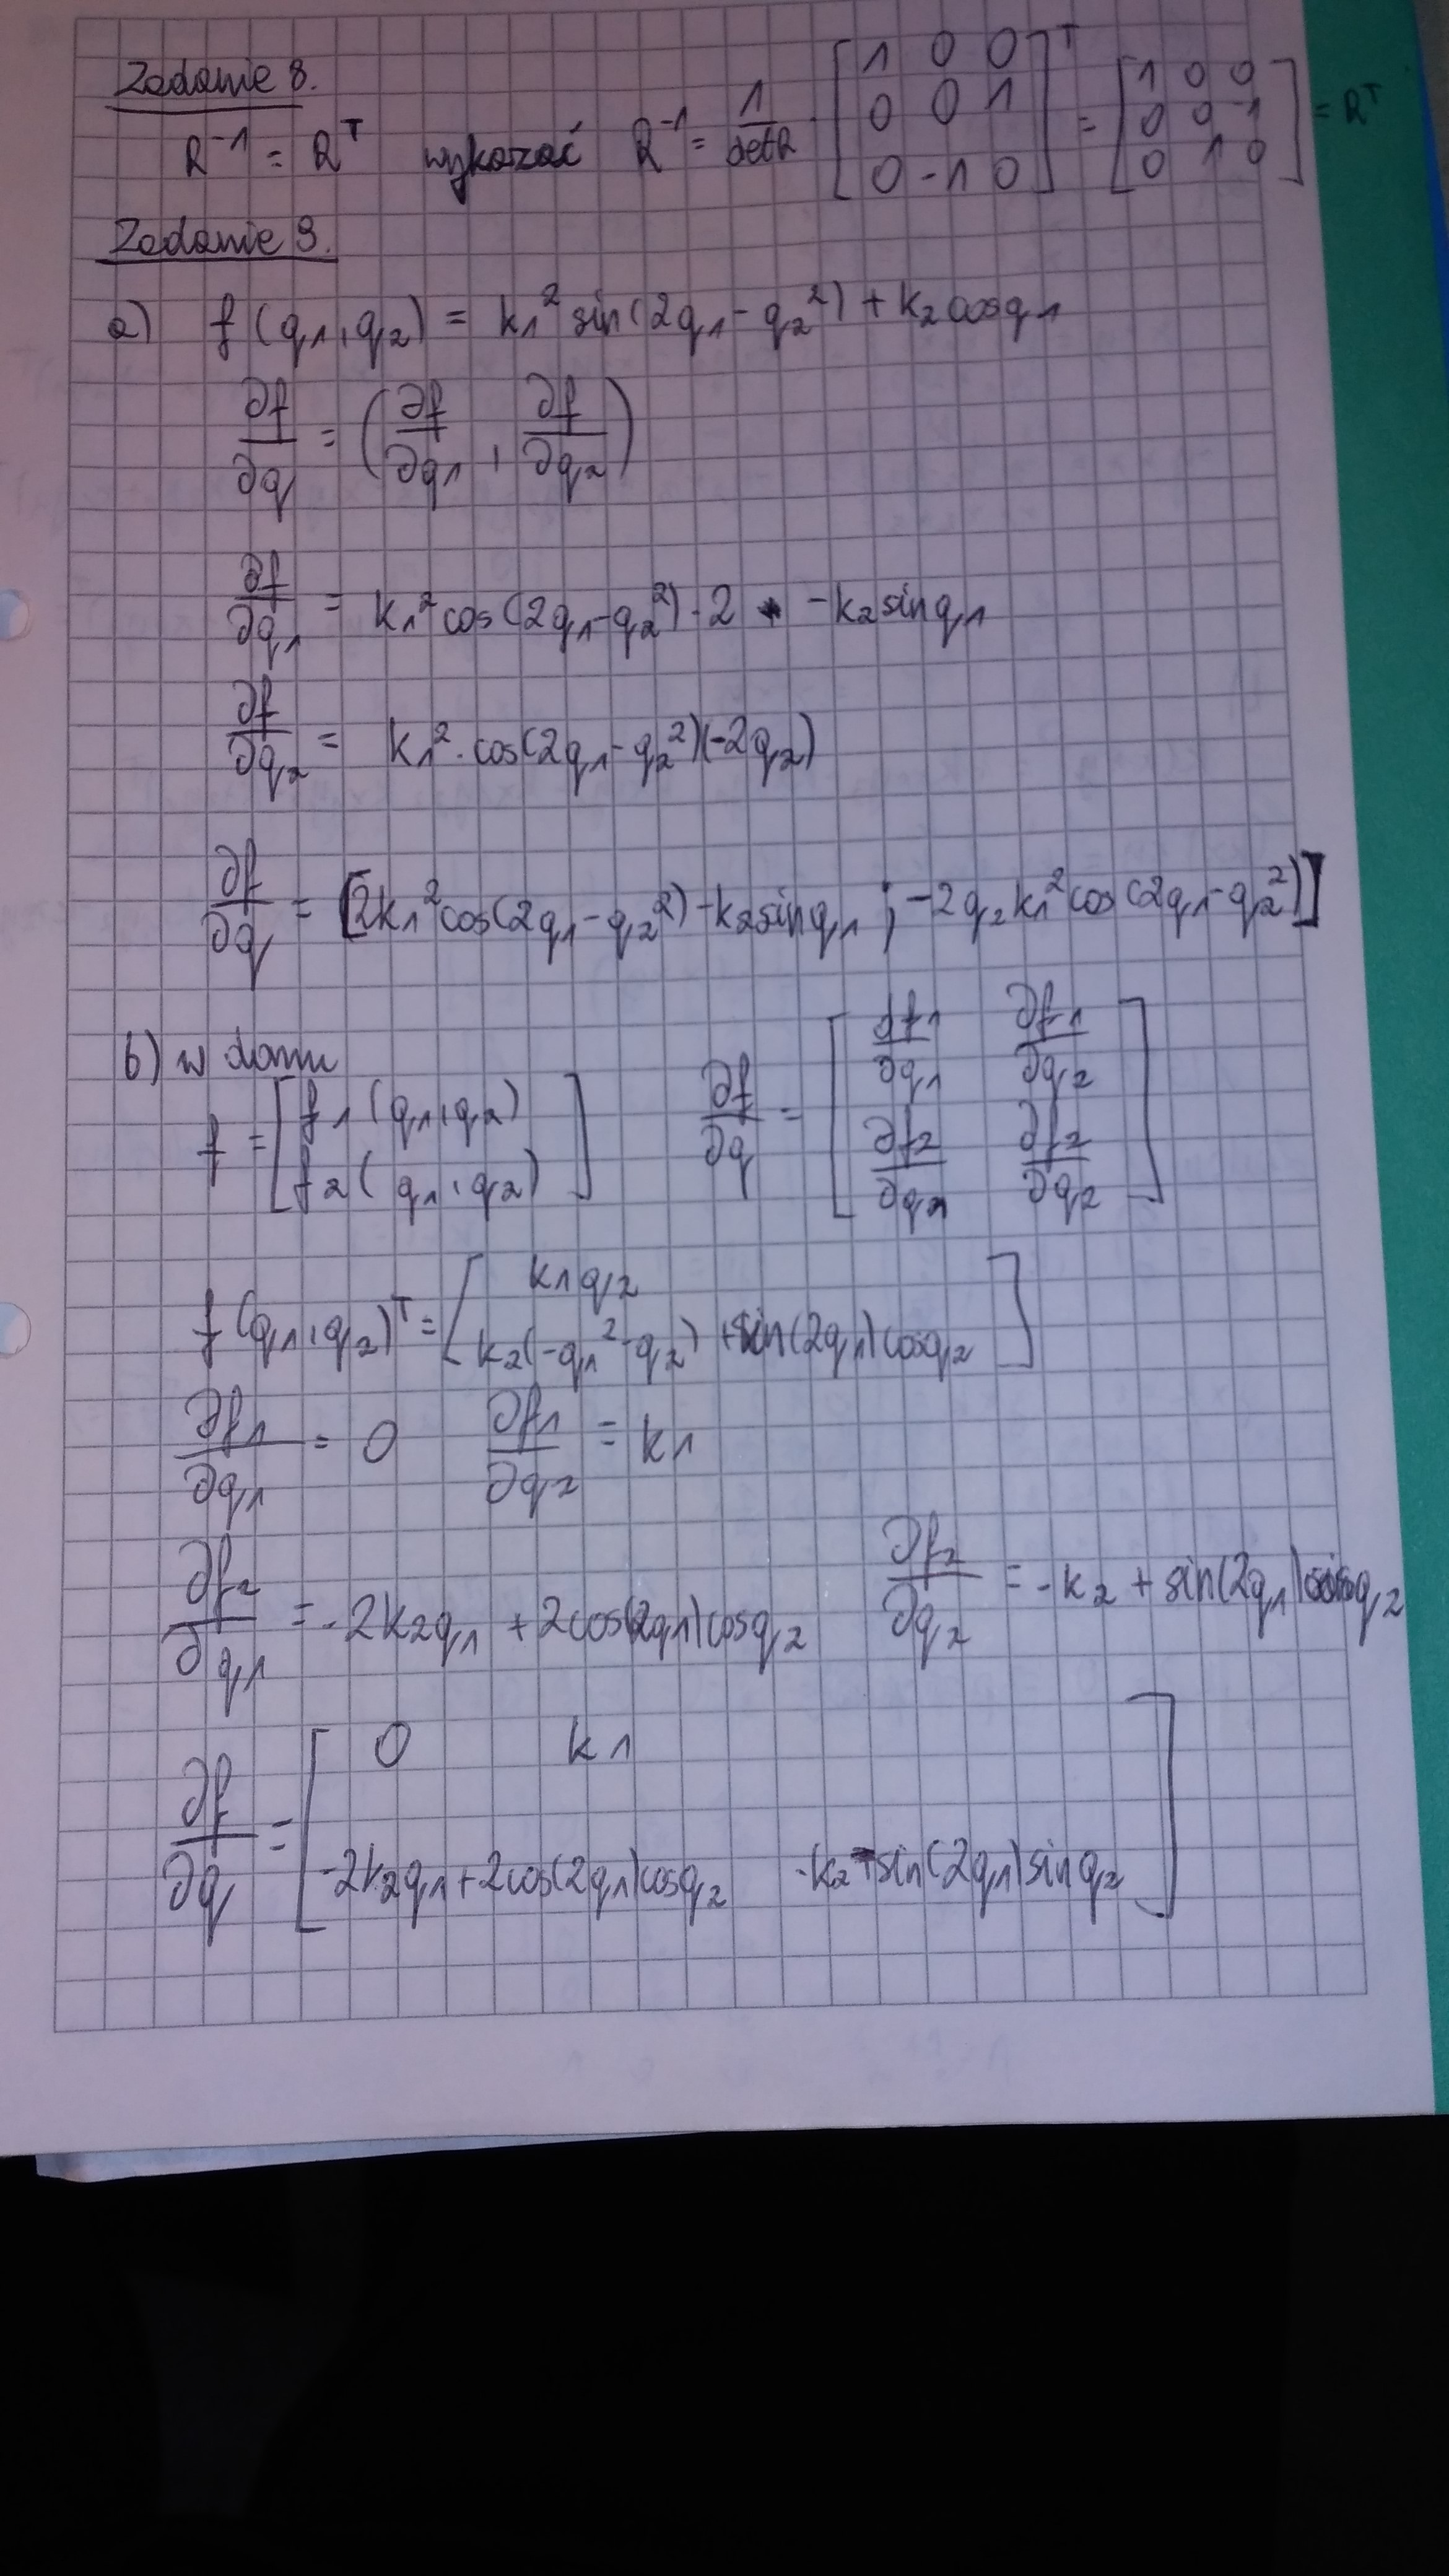 Zadanie 8.
R⁻¹ = Rᵀ wykazać R⁻¹ = 1/detR · [1 0 0; 0 0 1; 0 -1 0]ᵀ = [1 0 0; 0 0 -1; 0 1 0] = Rᵀ
Zadanie 9.
a) f(q₁, q₂) = k₁² sin(2q₁ - q₂²) + k₂ cosq₁
∂f/∂q = (∂f/∂q₁, ∂f/∂q₂)
∂f/∂q₁ = k₁² cos(2q₁ - q₂²) · 2 - k₂ sinq₁
∂f/∂q₂ = k₁² · cos(2q₁ - q₂²)(-2q₂)
∂f/∂q = [2k₁² cos(2q₁ - q₂²) - k₂ sinq₁ ; -2q₂ k₁² cos(2q₁ - q₂²)]
b) w domu
f = [f₁(q₁, q₂); f₂(q₁, q₂)] ∂f/∂q = [∂f₁/∂q₁ ∂f₁/∂q₂; ∂f₂/∂q₁ ∂f₂/∂q₂]
f(q₁, q₂)ᵀ = [k₁q₂; k₂(-q₁² - q₂) + sin(2q₁)cosq₂]
∂f₁/∂q₁ = 0 ∂f₁/∂q₂ = k₁
∂f₂/∂q₁ = -2k₂q₁ + 2cos(2q₁)cosq₂ ∂f₂/∂q₂ = -k₂ + sin(2q₁) q₂
∂f/∂q = [0 k₁; -2k₂q₁ + 2cos(2q₁)cosq₂ -k₂ - sin(2q₁)sinq₂]